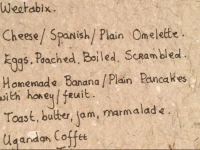 Weetabix.
Cheese/Spanish/Plain Omelette.
Eggs, Poached, Boiled, Scrambled.
Homemade Banana/Plain Pancakes
with honey/fruit.
Toast, butter, jam, marmalade.
Ugandan Coffee